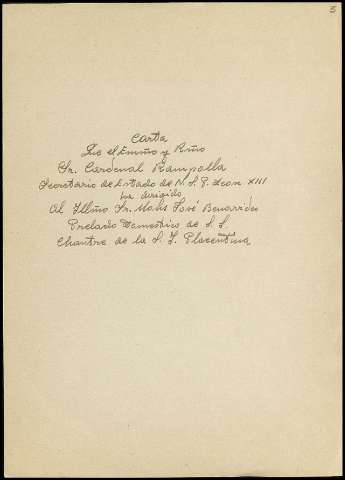 5
Carta
Que el Emmo y Rmo
Sr. Cardenal Rampolla
Secretario de Estado de N. S. P. Leon XIII
ha dirigido
Al Illmo Sr. José Benavides
Prelado Domestico de S. S.
Chantre de la S. I. Placentina